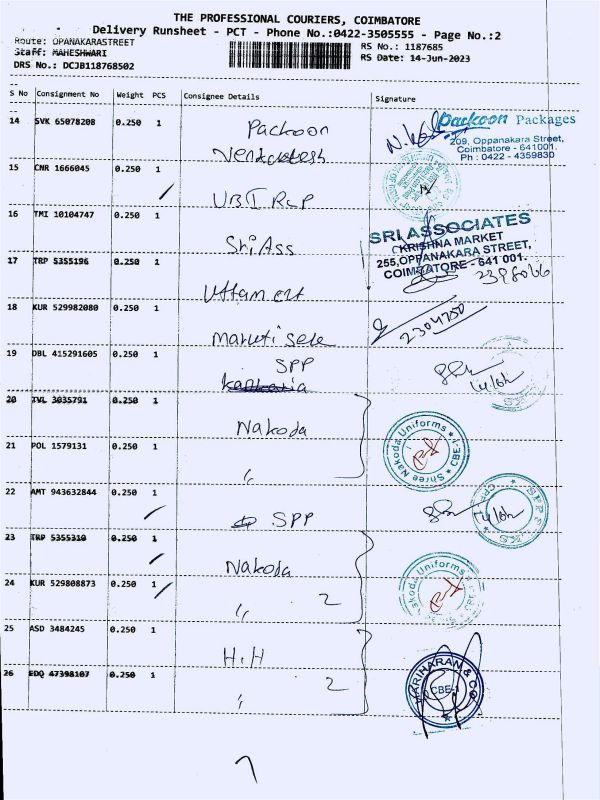 THE PROFESSIONAL COURIERS, COIMBATORE
Delivery Runsheet - PCT - Phone No.:0422-3505555 - Page No.:2
Route: OPANAKARASTREET
RS No.: 1187685
Staff: MAHESHWARI
RS Date: 14-Jun-2023
DRS No.: DCJB118768502
S No Consignment No Weight PCS Consignee Details Signature
14 SVK 65078208 0.250 1 Packoon Packoon Packages
Venkatesh 209, Oppanakara Street,
Coimbatore - 641001.
Ph : 0422 - 4359830
15 CNR 1666045 0.250 1
UBI RLP
16 TMI 10104747 0.250 1 SRI ASSOCIATES
Sri Ass KRISHNA MARKET
255,OPPANAKARA STREET,
17 TRP 5355196 0.250 1 COIMBATORE - 641 001.
Uttam 2398066
18 KUR 529982080 0.250 1 2304750
Maruti sele
19 DBL 415291605 0.250 1 SPP 14/6h
20 TVL 3035791 0.250 1
Nakoda Shree Nakoda Uniforms CBE-1
21 POL 1579131 0.250 1
"
22 AMT 943632844 0.250 1
SPP 14/6h
23 TRP 5355310 0.250 1
Nakoda
24 KUR 529808873 0.250 1
" 2
25 ASD 3484245 0.250 1
H.H HARIHARAN & CO.
CBE-1
26 EDQ 47398107 0.250 1
" 2